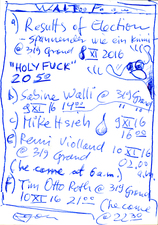 a) Results of Election
- spannender wie ein Krimi -
@ 319 Grand 8 XI 2016
"HOLY FUCK"
20.50
b) Sabine Walli @ 319 Grand
9 XI 16 14.00
c) Mike Hsieh 9 XI 16
16.00
e) Remi Violland 10 XI 16
@ 319 Grand 02.
(he came at 6 a.m.)
f) Tim Otto Roth @ 319 Grand
10 XI 16 21.00 (he came
@ 22.30